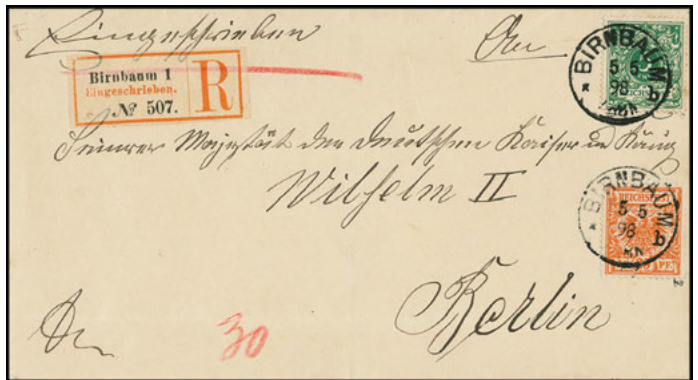 Eingeschrieben
An
Birnbaum 1
Eingeschrieben.
№ 507.
R
BIRNBAUM
5 5
98
* b
REICHSPOST
Seiner Majestät den Deutschen Kaiser u König
Wilhelm II
BIRNBAUM
5 5
98
* b
REICHSPOST
Berlin
30